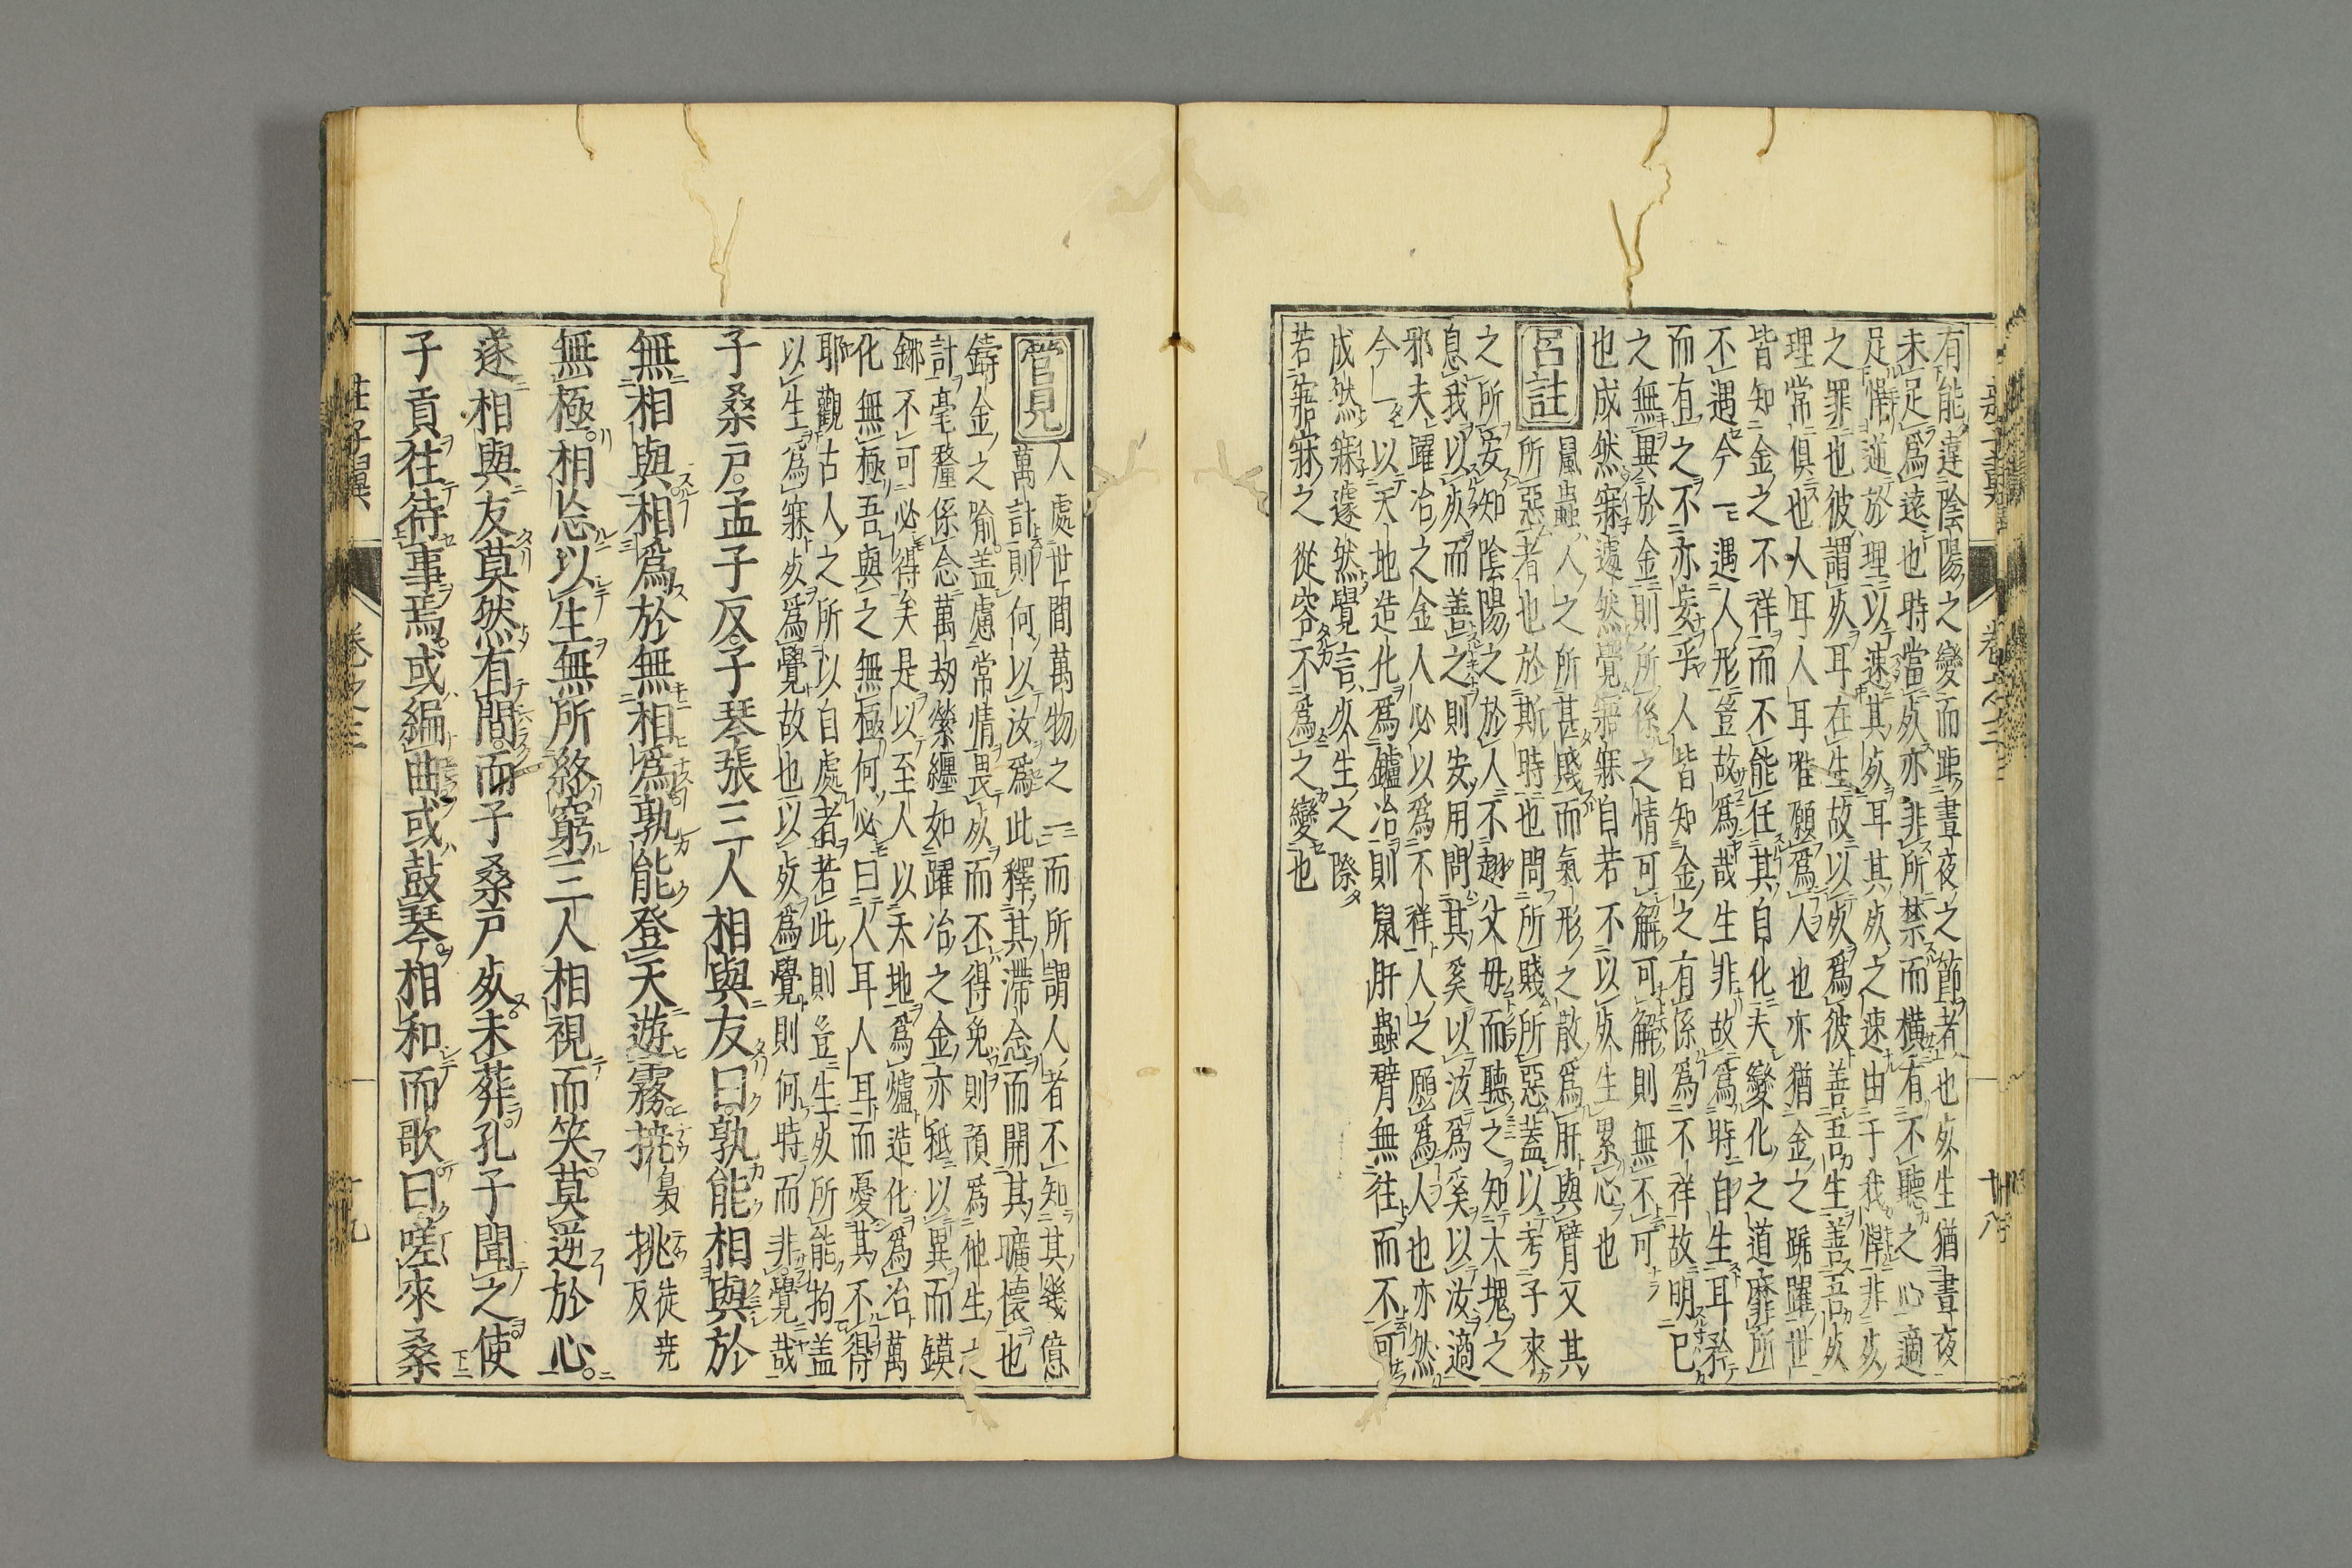 有能違陰陽之變而距晝夜之節者也死生猶晝夜
未足爲遠也時當死亦非所禁而橫有不聽之心適
足悍逆於理以速其死耳其死之速由于我悍非死
之罪也彼謂死耳在生故以死爲彼善吾生善吾死
理常俱也人耳人耳唯願爲人也亦猶金之踊躍世
皆知金之不祥而不能任其自化夫變化之道靡所
不遇今一遇人形豈故爲哉生非故爲時自生耳矜
而有之不亦妄乎人皆知金之有係爲不祥故明已
之無異於金則所係之情可解可解則無不可
也成然寐遽然覺寤寐自若不以死生累心也
呂註
鼠蟲人之所甚賤而氣形之散爲肝與臂又其
所惡者也於斯時也問所賤所惡蓋以考子來
之所安知陰陽之於人不趐父母而聽之知大塊之
息我以死而善之則安用問其奚以汝爲奚以汝適
邪夫躍冶之金人必以爲不祥人之願爲人也亦然
今一以天地造化爲鑪冶則鼠肝蟲臂無往而不可
成然寐遽然覺言死生之際
若寤寐之從容不爲之變也
莊子翼
卷之三
十八
管見
人處世間萬物之一而所謂人者不知其幾億
萬計則何以汝爲此釋其滯念而開其曠懷也
鑄金之喻盖慮常情畏死而不得免則預爲他生之
計毫釐係念萬劫縈纏如躍冶之金亦秪以異而鏌
鋣不可必得矣是以至人以天地爲爐造化爲冶萬
化無極吾與之無極何必曰人耳人耳而憂其不得
耶觀古人之所以自處者若此則豈生死所能拘盖
以生爲寐死爲覺故也以死爲覺則何時而非覺哉
子桑戸孟子反子琴張三人相與友曰孰能相與於
無相與相爲於無相爲孰能登天遊霧撓梟挑徒尭反
無極相忘以生無所終窮三人相視而笑莫逆於心
遂相與友莫然有間而子桑戸死未葬孔子聞之使
子貢往待事焉或編曲或鼓琴相和而歌曰嗟來桑
莊子翼
卷之三
十九